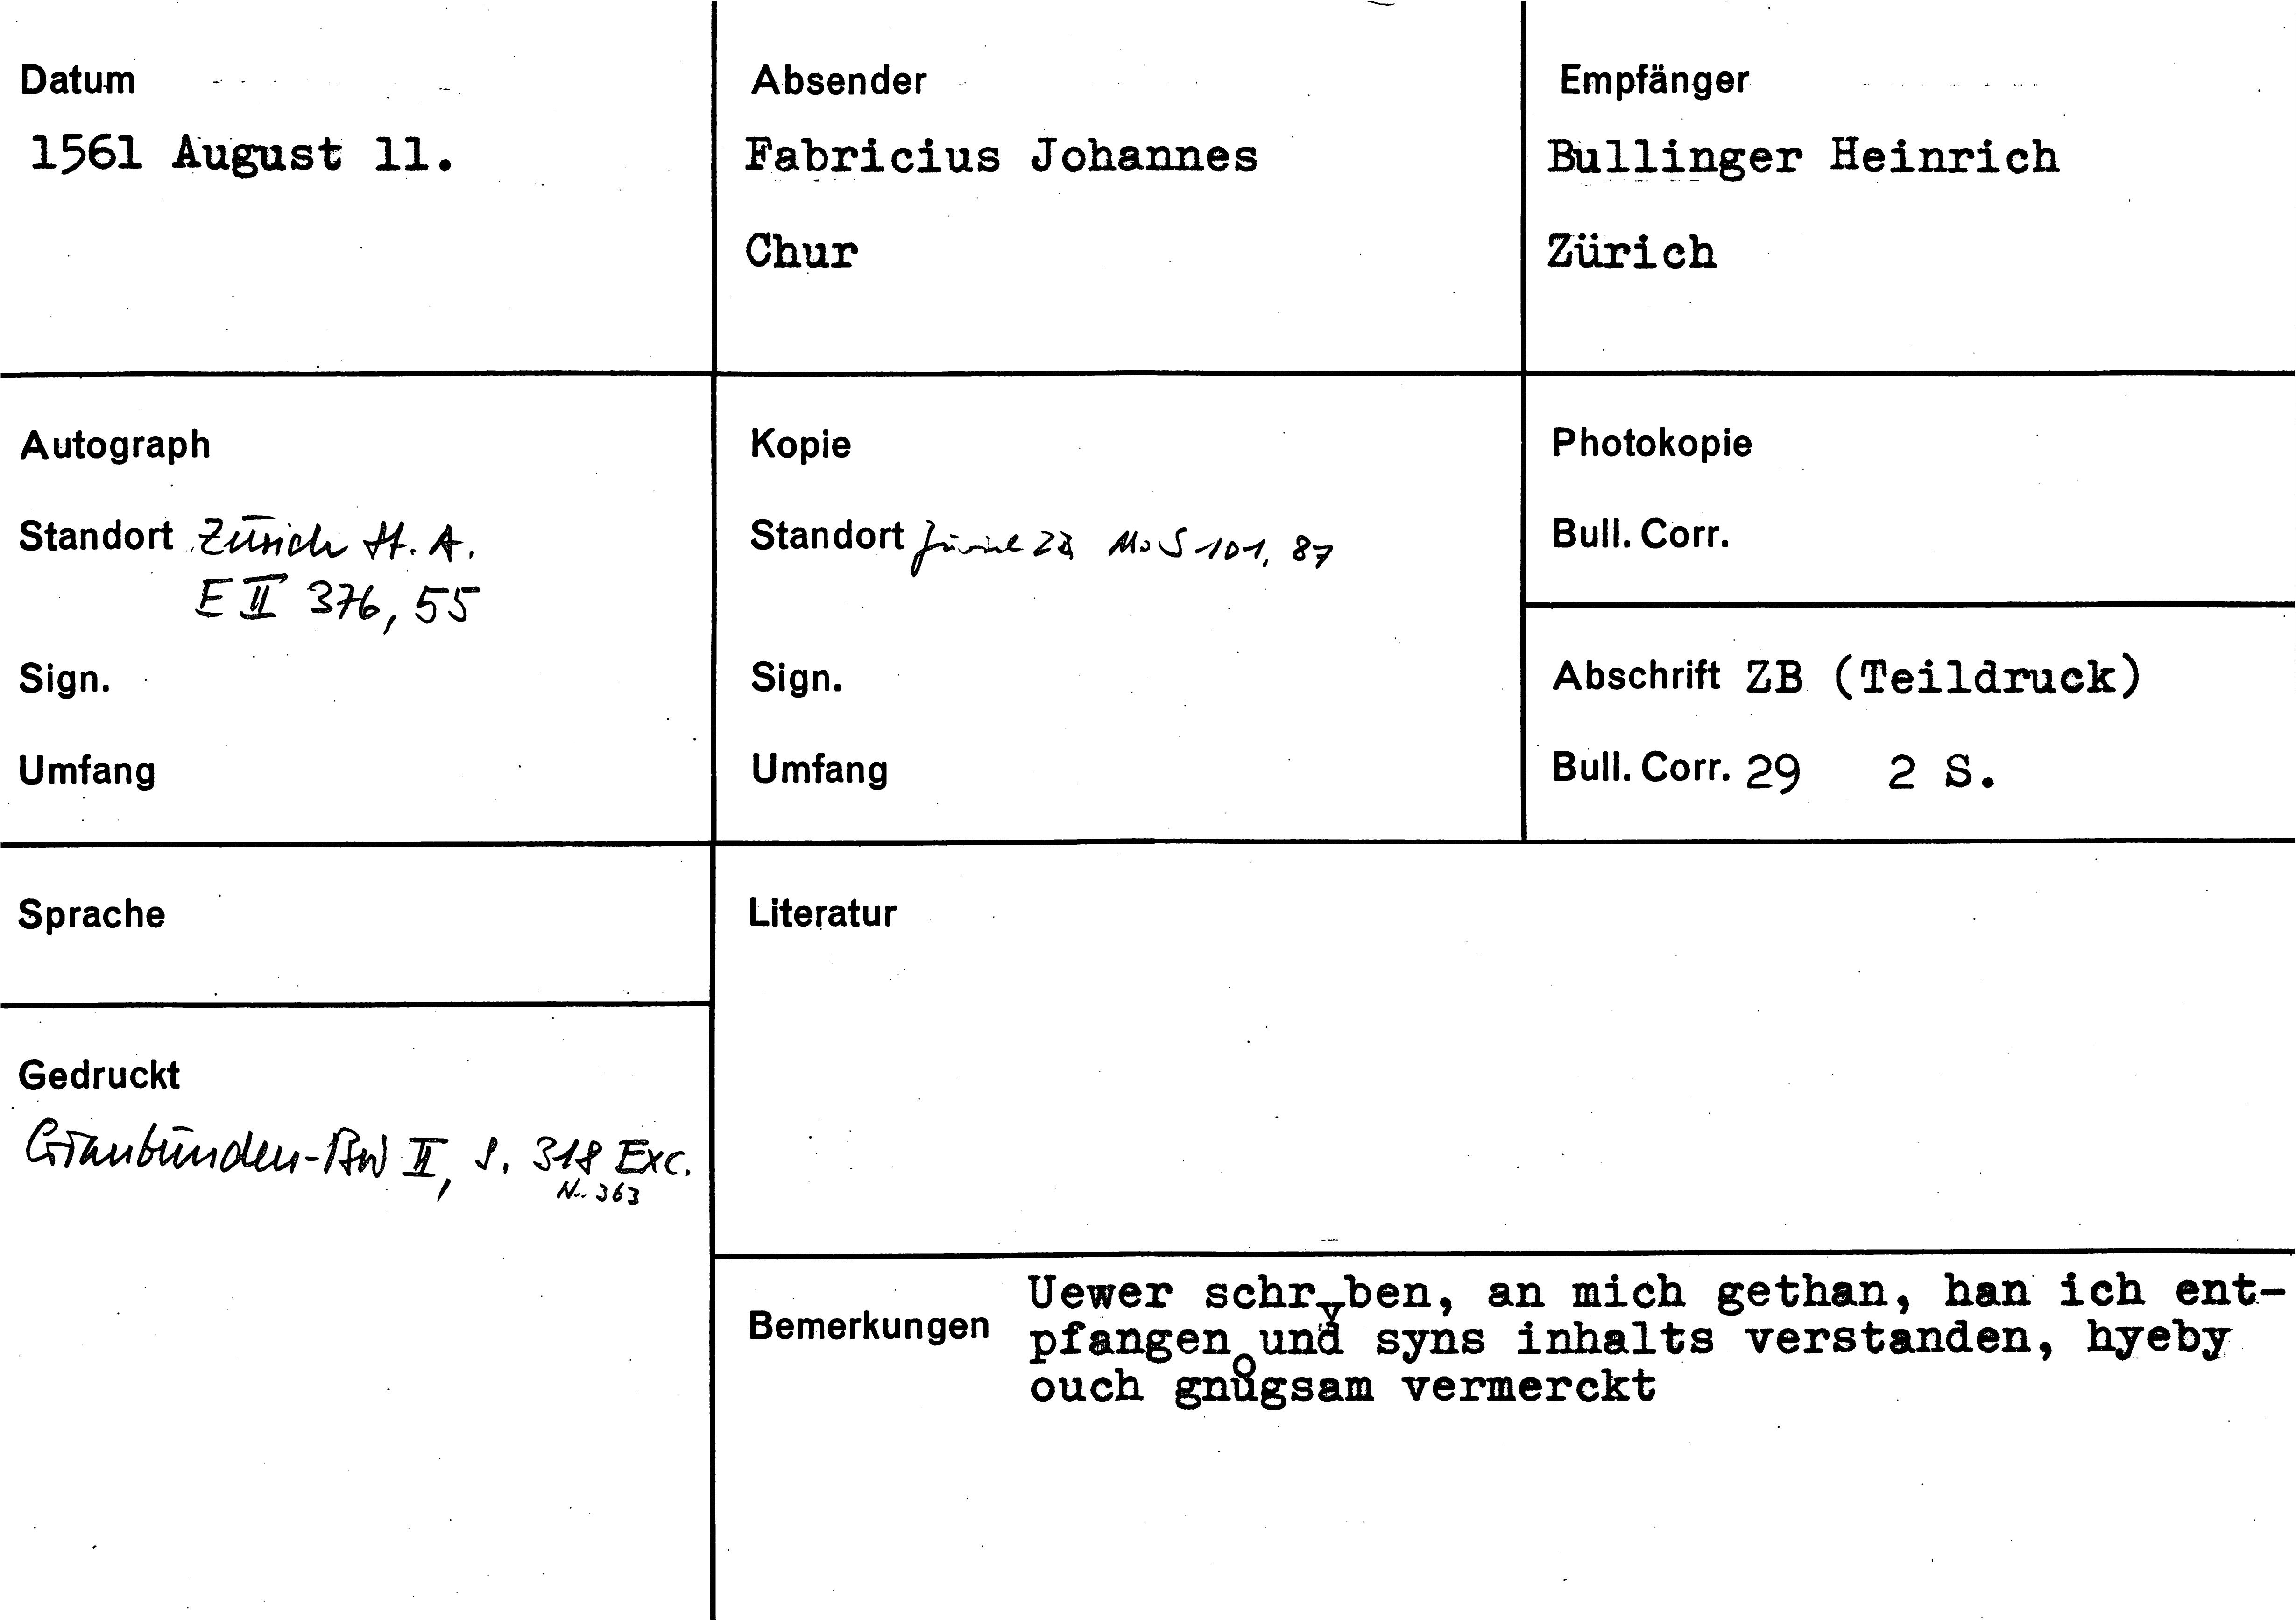 Datum
1561 August 11.
Absender
Fabricius Johannes
Chur
Empfänger
Bullinger Heinrich
Zürich
Autograph
Standort Zürich St. A.
E II 376, 55
Sign.
Umfang
Kopie
Standort Zürich ZB Ms S 101, 87
Sign.
Umfang
Photokopie
Bull. Corr.
Abschrift ZB (Teildruck)
Bull. Corr. 29 2 S.
Sprache
Gedruckt
Graubünden-Bw II, S. 318 Exc.
Nr. 363
Literatur
Bemerkungen
Uewer schryben, an mich gethan, han ich ent-
pfangen und syns inhalts verstanden, hyeby
ouch gnůgsam vermerckt